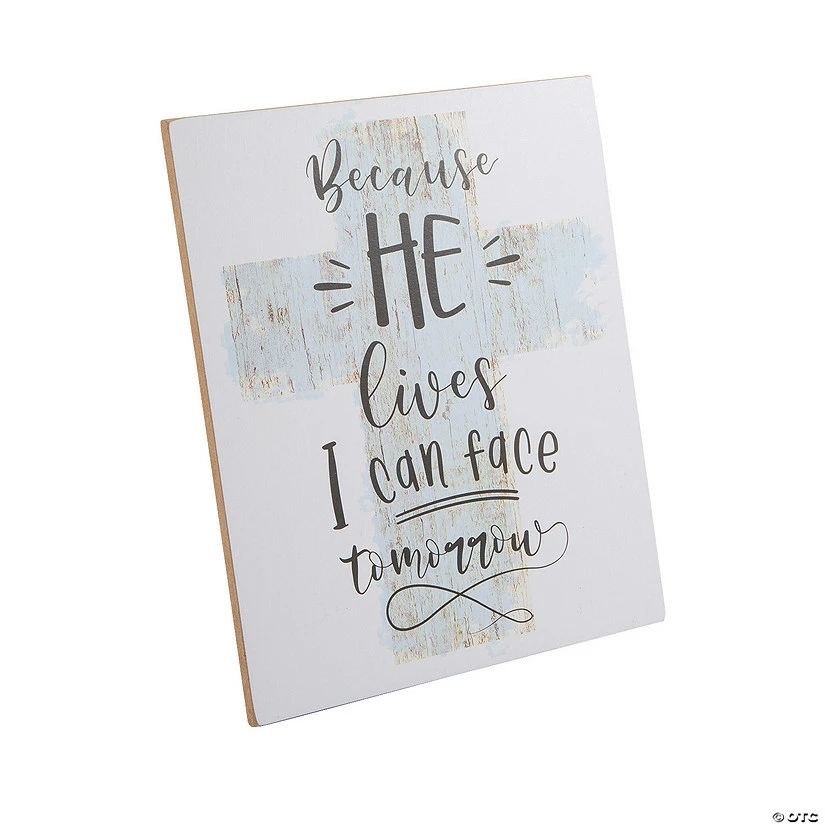 Because
HE
lives
I can face
tomorrow
© OTC